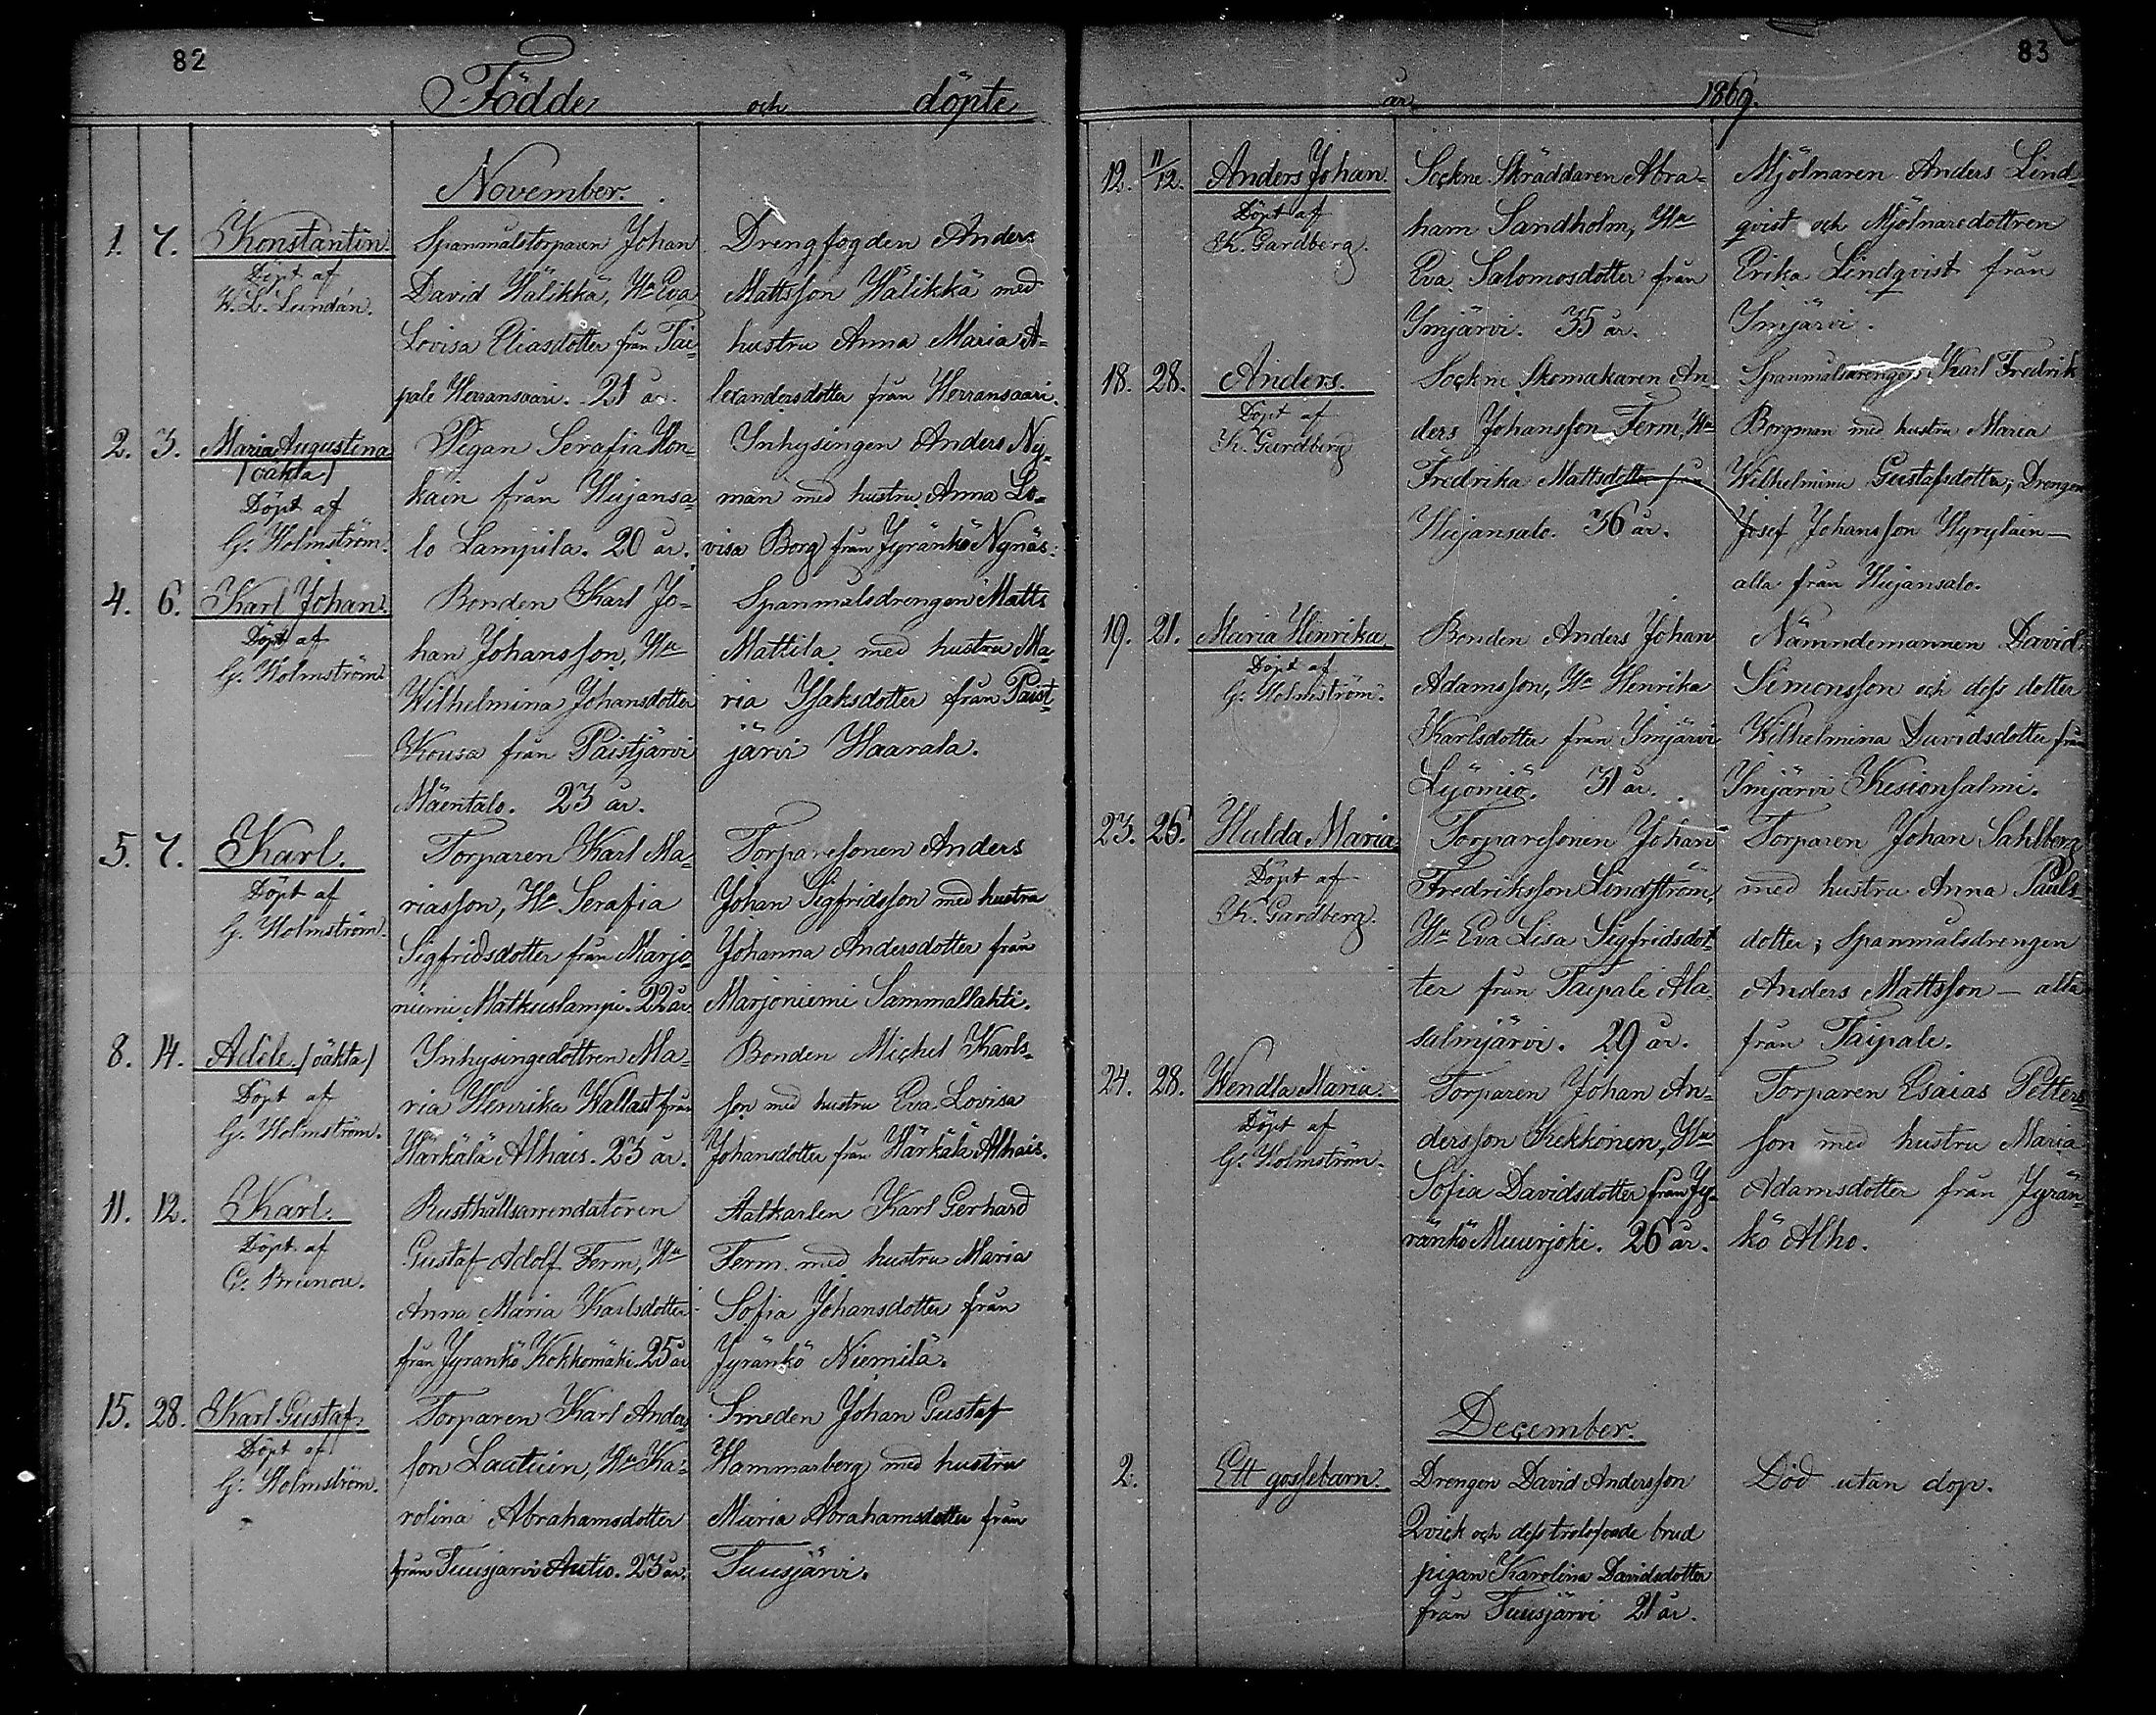 82
Födde och döpte
November.
1. 7. Konstantin.
Döpt af
W. L. Lundán.
Spanmålstorparen Johan
David Hälikkä, Hu Eva
Lovisa Eliasdotter från Tai-
pale Herransaari. 21 år.
Drengfogden Anders
Mattsson Hälikkä med
hustru Anna Maria A-
lexandersdotter från Herransaari.
2. 3. Maria Augustina
/oäkta/
Döpt af
G. Holmström.
Pigan Serafia Hon-
kain från Hujansa-
lo Lampila. 20 år.
Inhysingen Anders Ny-
man med hustru Anna Lo-
visa Borg från Jyränkö Nynäs.
4. 6. Karl Johan.
Döpt af
G. Holmström.
Bonden Karl Jo-
han Johansson, Hu
Wilhelmina Johansdotter
Kousa från Paistjärvi
Mäentalo. 23 år.
Spanmålsdrengen Matts
Mattila med hustru Ma-
ria Isaksdotter från Paist-
järvi Haarala.
5. 7. Karl.
Döpt af
G. Holmström.
Torparen Karl Ma-
riasson, Hu Serafia
Sigfridsdotter från Marjo-
niemi Matkuslampi. 22 år.
Torparesonen Anders
Johan Sigfridsson med hustru
Johanna Andersdotter från
Marjoniemi Sammallahti.
8. 14. Adèle. /oäkta/
Döpt af
G. Holmström.
Inhysingedottren Ma-
ria Henrika Wallast från
Härkälä Alhais. 23 år.
Bonden Michel Karls-
son med hustru Eva Lovisa
Johansdotter från Härkälä Alhais.
11. 12. Karl.
Döpt af
C. Brunou.
Rusthållsarrendatoren
Gustaf Adolf Ferm, Hu
Anna Maria Karlsdotter
från Jyränkö Kokkomäki. 25 år
Aatkarlen Karl Gerhard
Ferm med hustru Maria
Sofia Johansdotter från
Jyränkö Niemilä.
15. 28. Karl Gustaf.
Döpt af
G. Holmström.
Torparen Karl Anders
son Laatuin, Hu Ka-
rolina Abrahamsdotter
från Tuusjärvi Antio. 23 år.
Smeden Johan Gustaf
Hammarberg med hustru
Maria Abrahamsdotter från
Tuusjärvi.
83
år 1869.
12. 11/12. Anders Johan.
Döpt af
K. Gardberg.
Sockne Skräddaren Abra-
ham Sandholm, Hu
Eva Salomosdotter från
Imjärvi. 35 år.
Mjölnaren Anders Lind-
qvist och Mjölnaredottren
Erika Lindqvist från
Imjärvi.
18. 28. Anders.
Döpt af
K. Gardberg
Sockne Skomakaren An-
ders Johansson Ferm, Hu
Fredrika Mattsdotter från
Hujansalo. 36 år.
Karl Fredrik
Borgman med hustru Maria
Wilhelmina Gustafsdotter; Drengen
Josef Johansson Hyryläin —
alla från Hujansalo.
19. 21. Maria Henrika.
Döpt af
G. Holmström.
Bonden Anders Johan
Adamsson, Hu Henrika
Karlsdotter från Imjärvi
Lyömiö. 31 år.
Nämndemannen David
Simonsson och dess dotter
Wilhelmina Davidsdotter från
Imjärvi Kesionsalmi.
23. 26. Hulda Maria
Döpt af
K. Gardberg.
Torparesonen Johan
Fredriksson Lindström,
Hu Eva Lisa Sigfridsdot-
ter från Taipale Ala-
salmjärvi. 29 år.
Torparen Johan Sahlberg
med hustru Anna Pauls-
dotter; Spanmålsdrengen
Anders Mattsson — alla
från Taipale.
24. 28. Wendla Maria.
Döpt af
G. Holmström.
Torparen Johan An-
dersson Kekkonen, Hu
Sofia Davidsdotter från Jy-
ränkö Muurjoki. 26 år.
Torparen Esaias Petters-
son med hustru Maria
Adamsdotter från Jyrän-
kö Alho.
December.
2. Ett gossebarn.
Drengen David Andersson
Qvick och dess trolofvade brud
pigan Karolina Davidsdotter
från Tuusjärvi 21 år.
Död utan dop.